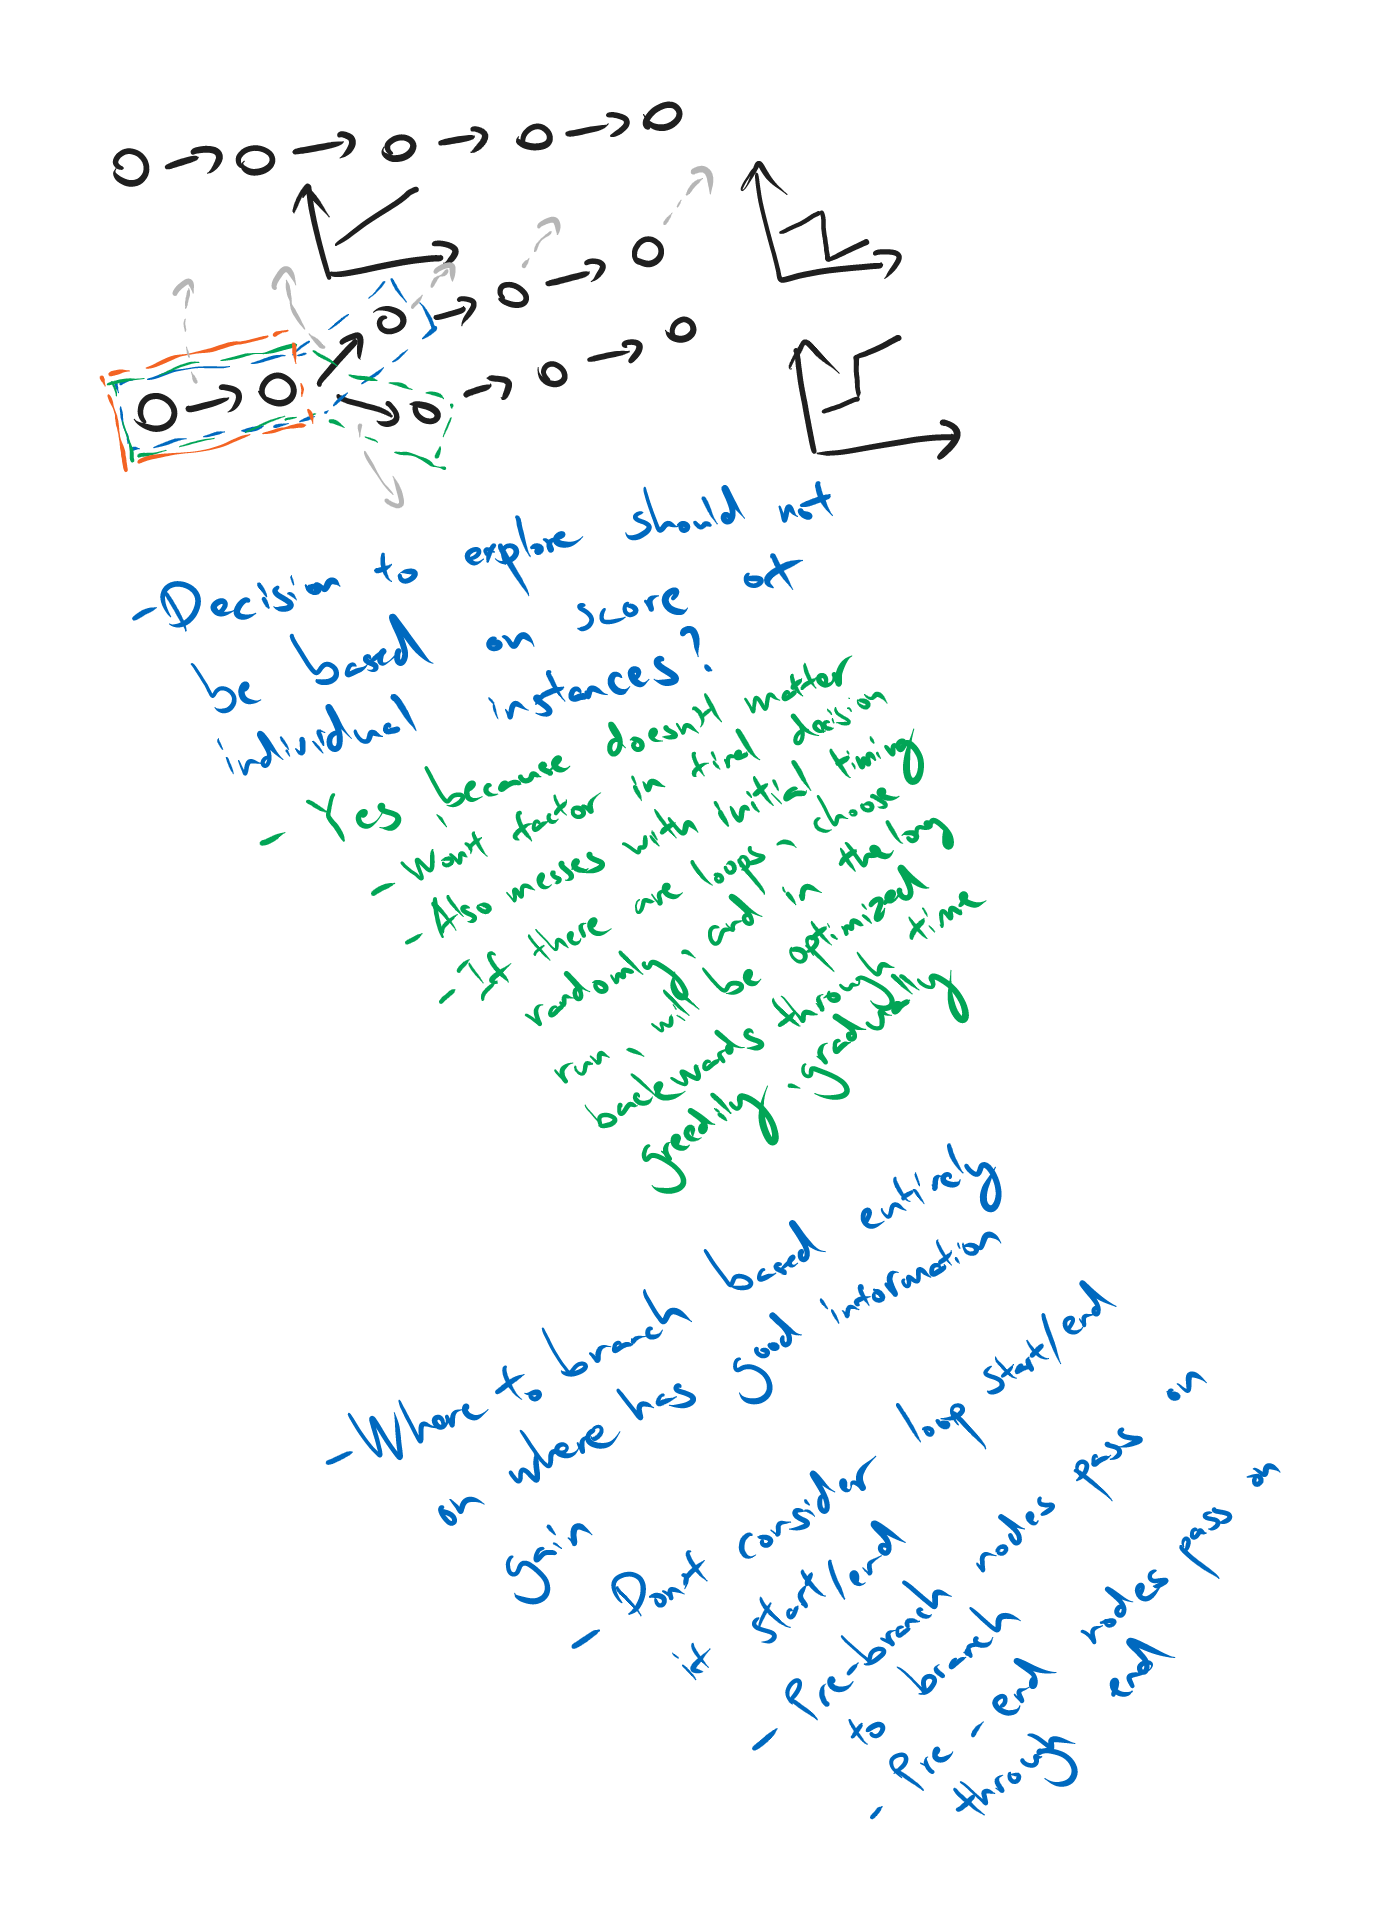 - Decision to explore should not
be based on score at
individual instances?
- Yes, because doesn't matter
- Won't factor in final decision
- Also messes with initial timing
- If there are loops - choose
randomly, and in the long
run, will be optimized
backwards through time
greedily, gradually
- Where to branch based entirely
on where has good information
gain
- Don't consider loop start/end
it start/end
- Pre-branch nodes pass on
to branch
- Pre-end nodes pass on
through end